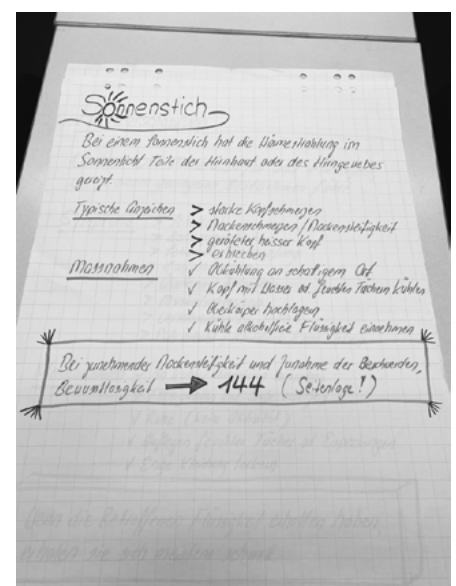 Sonnenstich
Bei einem Sonnenstich hat die Wärmestrahlung im
Sonnenlicht Teile der Hirnhaut oder des Hirngewebes
gereizt.
Typische Anzeichen > starke Kopfschmerzen
> Nackenschmerzen / Nackensteifigkeit
> geröteter heisser Kopf
> Erbrechen
Massnahmen ✓ Abkühlung an schattigem Ort
✓ Kopf mit Wasser od. feuchten Tüchern kühlen
✓ Oberkörper hochlagern
✓ Kühle alkoholfreie Flüssigkeit einnehmen
Bei zunehmender Nackensteifigkeit und Zunahme der Beschwerden,
Bewusstlosigkeit → 144 (Seitenlage!)